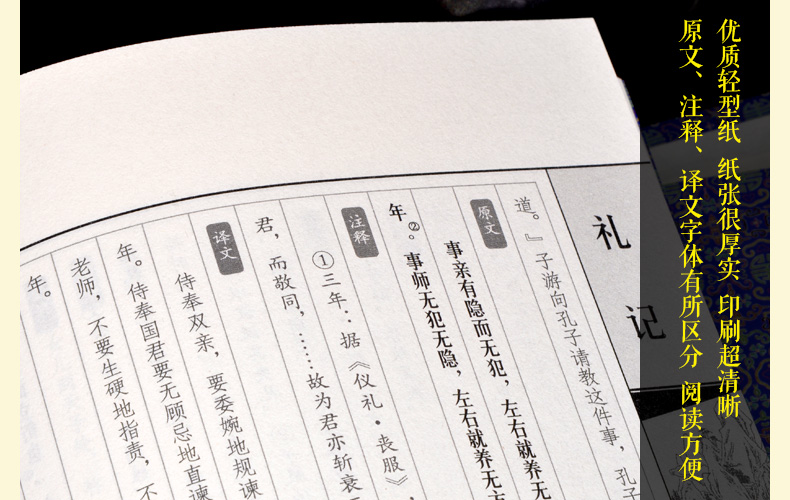 优质轻型纸 纸张很厚实 印刷超清晰
原文、注释、译文字体有所区分 阅读方便
礼记
道。』子游向孔子请教这件事，孔子
原文
事亲有隐而无犯，左右就养无
年②。事师无犯无隐，左右就养无方
注释
①三年：据《仪礼·丧服》，
君，而敬同，……故为君亦斩衰
译文
侍奉双亲，要委婉地规谏
年。侍奉国君要无顾忌地直谏
老师，不要生硬地指责，不
年。